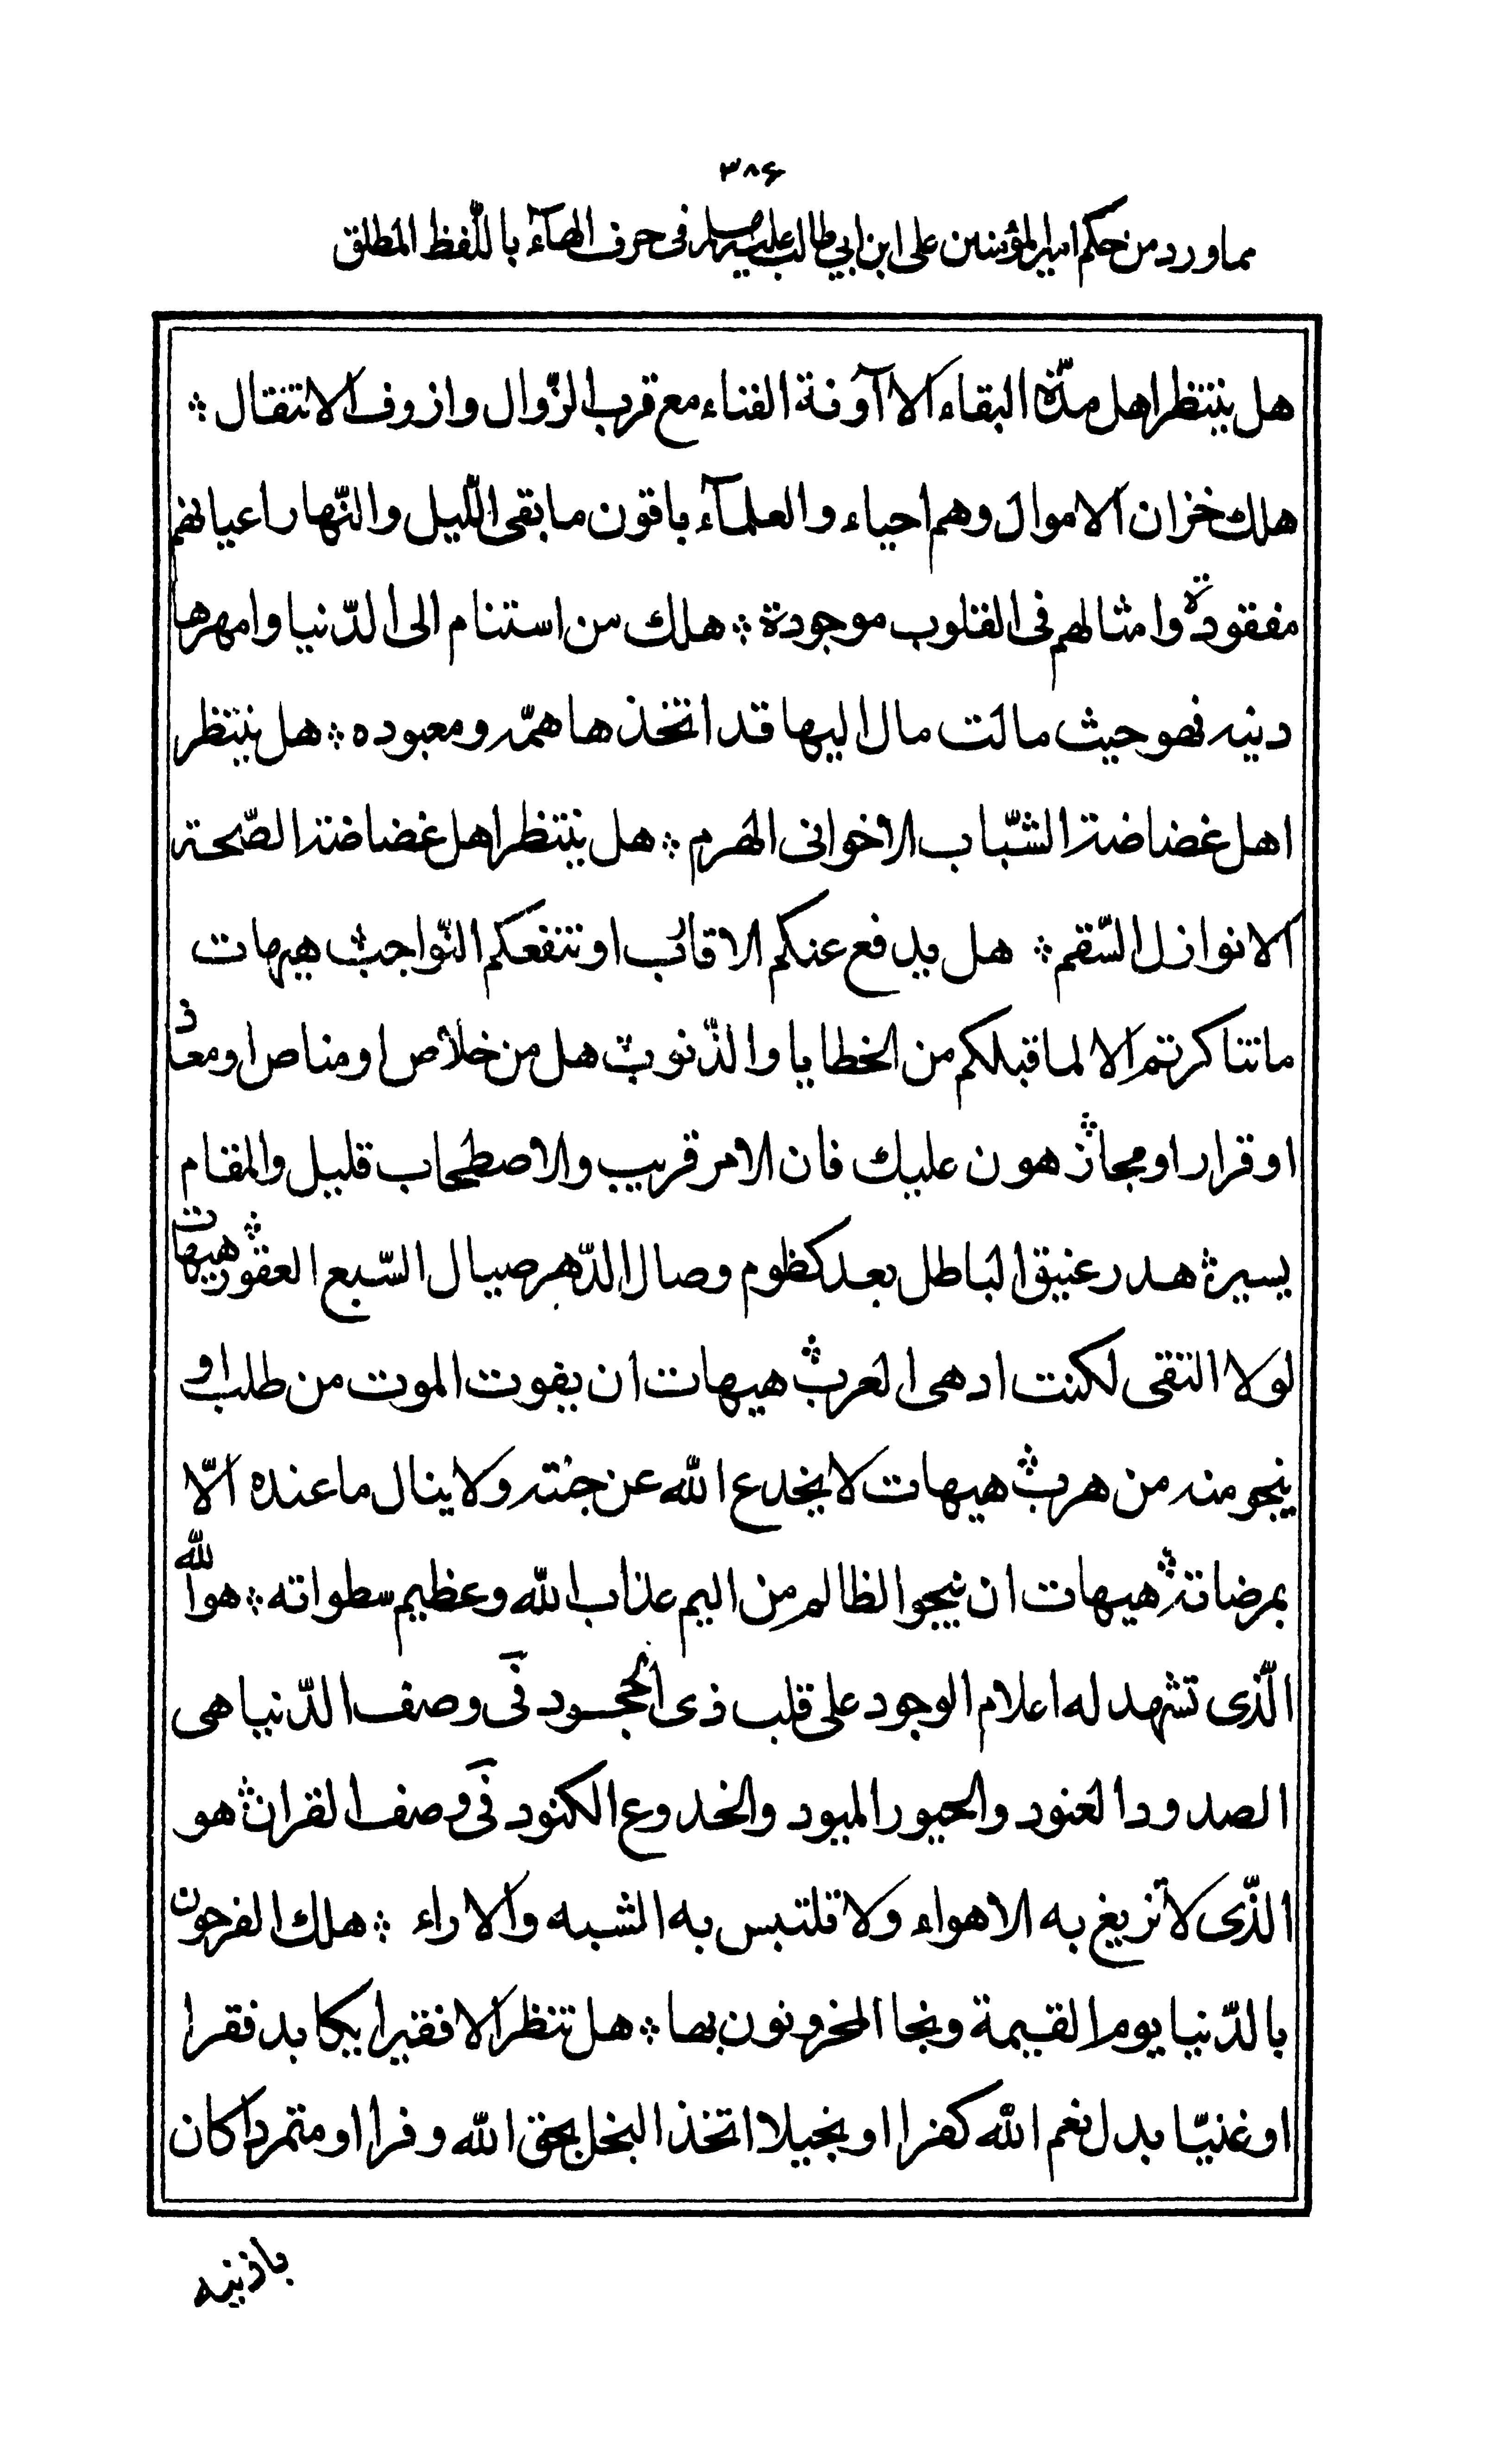 ۳۸۶
مما ورد من حکم امیرالمؤمنین علی ابن ابی طالب علیه السلام فی حرف الهآء باللّفظ المطلق
هل ینتظر اهل مدّة البقاء الا آونة الفناء مع قرب الزّوال وازوف الانتقال ⁘
هلك خزان الاموال وهم احیاء والعلمآء باقون ما بقی اللّیل والنّهار اعیانهم
مفقودة وامثالهم فی القلوب موجودة ⁘ هلك من استنام الی الدّنیا وامهرها
دینه فهو حیث مالت مال الیها قد اتخذها همّه ومعبوده ⁘ هل ینتظر
اهل غضاضة الشّباب الا حوانی الهرم ⁘ هل ینتظر اهل غضاضة الصّحة
الا نوازل السّقم ⁘ هل یدفع عنکم الاقارب او تنفعکم النّواحب ⁘ هیهات
ما تناکرتم الا لما قبلکم من الخطایا والذّنوب ⁘ هل من خلاص او مناص او معاذ
او قرار او مجاز ⁘ هون علیك فان الامر قریب والاصطحاب قلیل والمقام
یسیر ⁘ هدر عنیق الباطل بعد کظوم وصال الدّهر صیال السّبع العقور ⁘ هیهات
لولا التقی لکنت ادهی العرب ⁘ هیهات ان یفوت الموت من طلب او
ینجو منه من هرب ⁘ هیهات لا یخدع الله عن جنته ولا ینال ما عنده الّا
بمرضاته ⁘ هیهات ان ینجو الظالم من الیم عذاب الله وعظیم سطواته ⁘ هو الله
الّذی تشهد له اعلام الوجود علی قلب ذی الجحود فی وصف الدّنیا هی
الصدود العنود والحیود المیود والخدوع الکنود فی وصف القران ⁘ هو
الذّی لا تزیغ به الاهواء ولا تلتبس به الشبه والاراء ⁘ هلك الفرحون
بالدّنیا یوم القیمة ونجا المحزونون بها ⁘ هل تنظر الا فقیرا یکابد فقرا
او غنیّا بدل نعم الله کفرا او بخیلا اتخذ البخل بحق الله وفرا او متمردا کان
باذنیه